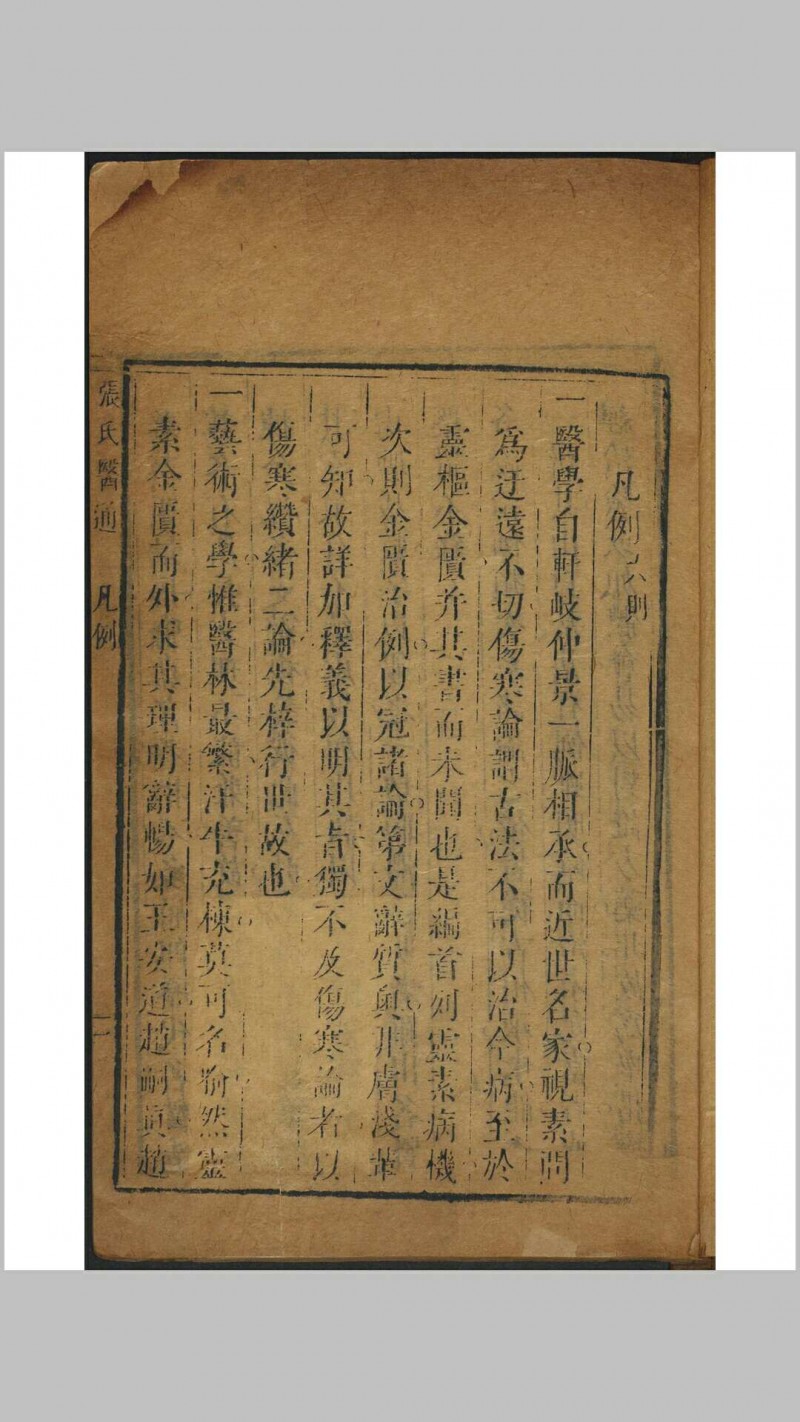 凡例六則
一醫學自軒岐仲景一脈相承而近世名家視素問
爲迂遠不切傷寒論謂古法不可以治今病至於
靈樞金匱并其書而未聞也是編首列靈素病機
次則金匱治例以冠諸論第文辭質奧非膚淺輩
可知故詳加釋義以明其旨獨不及傷寒論者以
傷寒纘緒二論先梓行世故也
一藝術之學惟醫林最繁汗牛充棟莫可名喻然靈
素金匱而外求其理明辭暢如王安道趙嗣真趙
張氏醫通 凡例 二